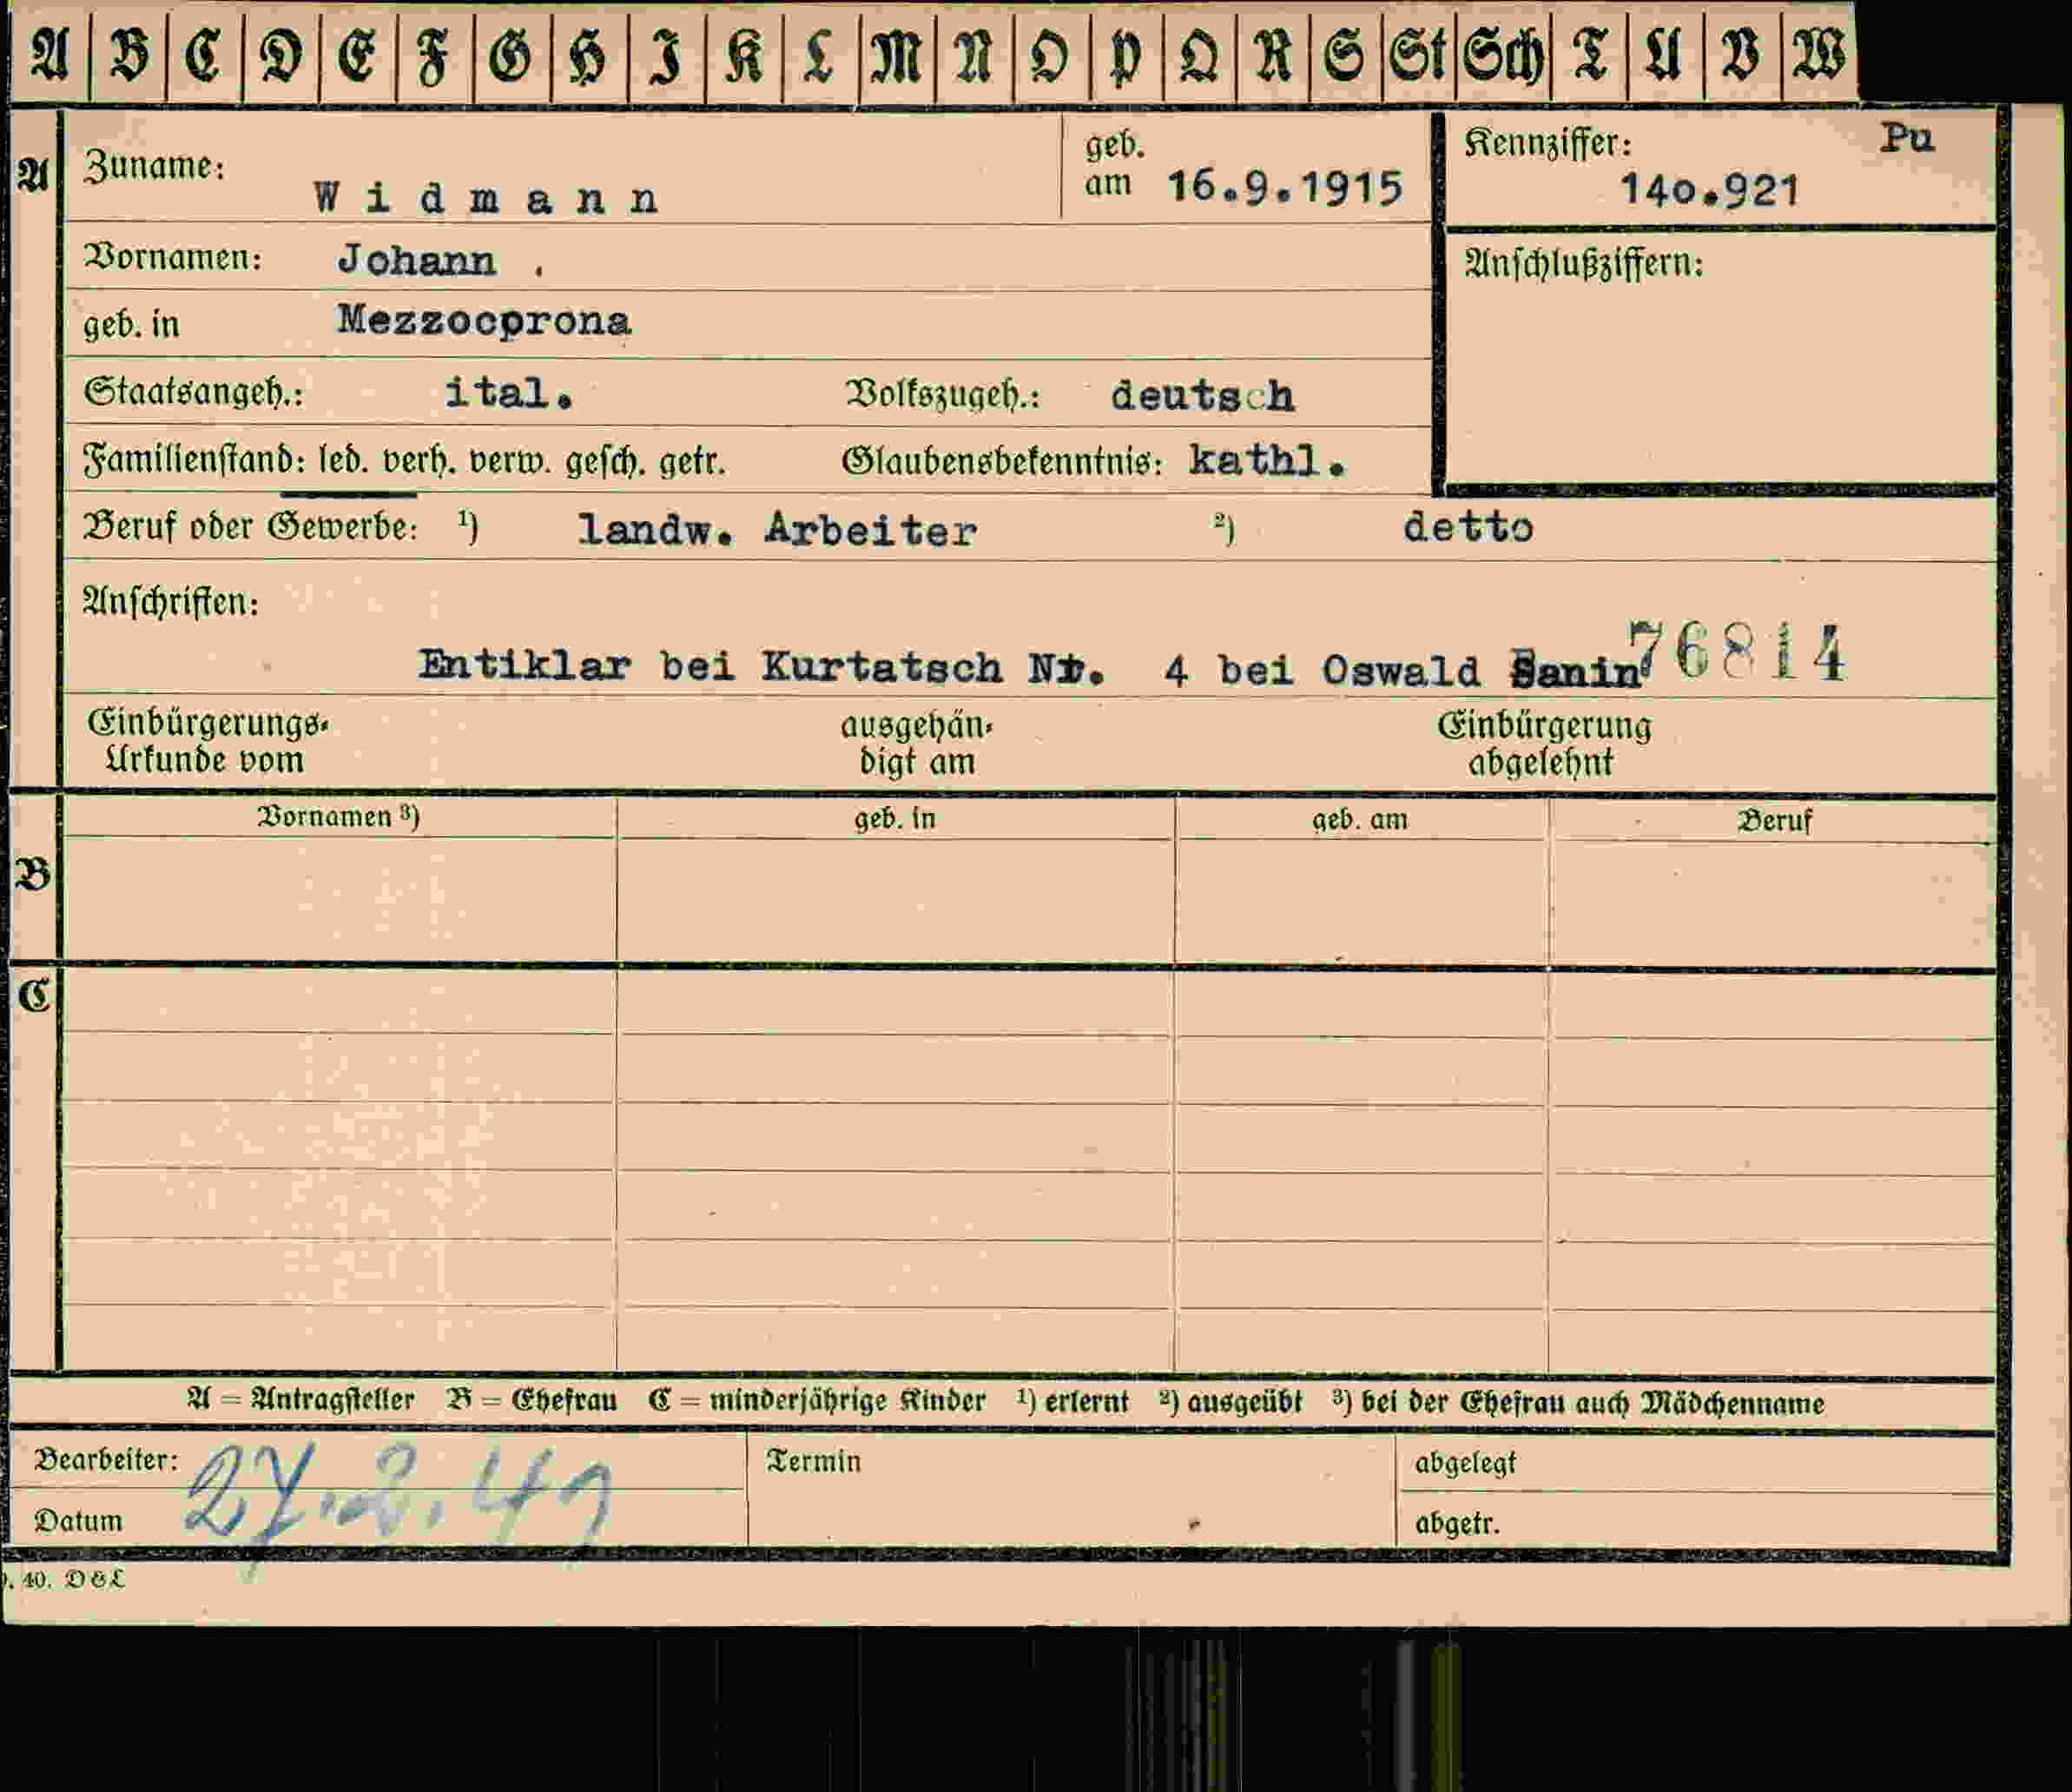 A B C D E F G H I K L M N O P Q R S St Sch T U V W
A
Zuname: Widmann
geb. am 16.9.1915
Kennziffer: 14o.921
Pu
Vornamen: Johann .
Anschlußziffern:
geb. in Mezzocorona
Staatsangeh.: ital. Volkszugeh.: deutsch
Familienstand: led. verh. verw. gesch. getr. Glaubensbekenntnis: kathl.
Beruf oder Gewerbe: ¹) landw. Arbeiter ²) detto
Anschriften:
Entiklar bei Kurtatsch Nr. 4 bei Oswald Sanin 76814
Einbürgerungs-
Urkunde vom
ausgehän-
digt am
Einbürgerung
abgelehnt
B
Vornamen ³) geb. in geb. am Beruf
C
A = Antragsteller B = Ehefrau C = minderjährige Kinder ¹) erlernt ²) ausgeübt ³) bei der Ehefrau auch Mädchenname
Bearbeiter: Termin abgelegt
Datum 27.2.41 abgetr.
40. D&L